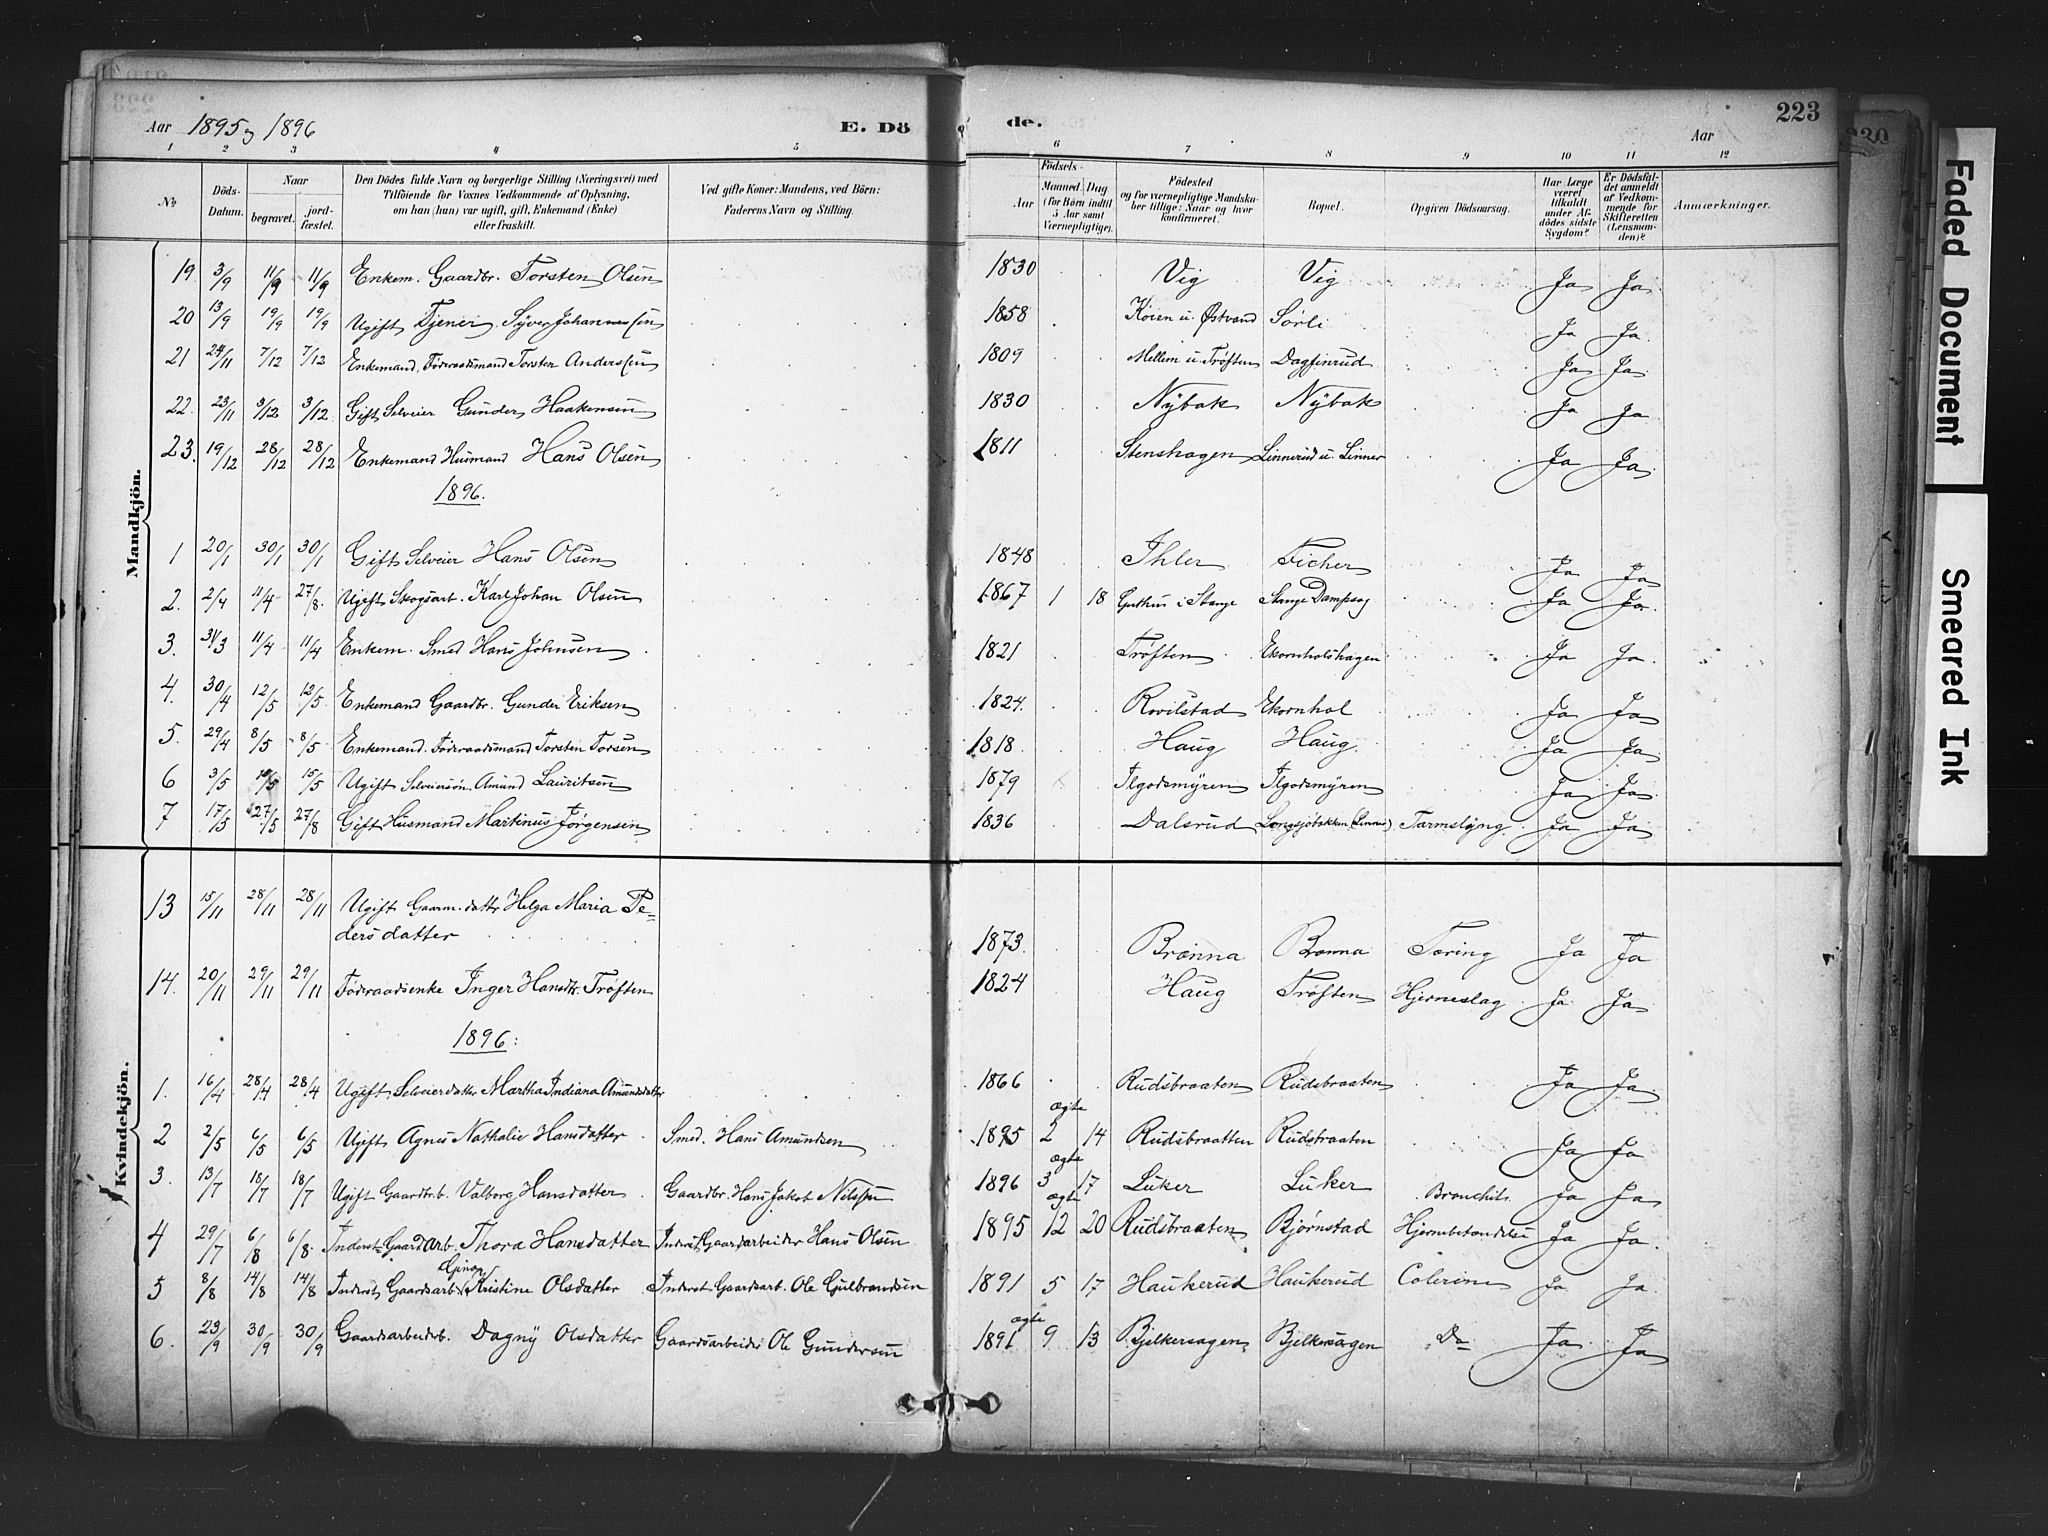 Aar 1895 og 1896 E. Dö de. Aar 223
1 2 3 4 5 6 7 8 9 10 11 12
No Döds-Datum. Naar begravet. jord-fæstet. Den Dödes fulde Navn og borgerlige Stilling (Næringsvei) med Tilföiende for Voxnes Vedkommende af Oplysning, om han (hun) var ugift, gift, Enkemand (Enke) eller fraskilt. Ved gifte Koner: Mandens, ved Börn: Faderens Navn og Stilling. Födsels- Aar Maaned. Dag (for Börn indtil 5 Aar samt Værnepligtige). Födested og for værnepligtige Mandskaber tillige: Naar og hvor konfirmeret. Bopæl. Opgiven Dödsaarsag. Har Læge været tilkaldt under Afdödes sidste Sygdom? Er Dödsfaldet anmeldt af Vedkommende for Skifteretten (Lensmanden)? Anmærkninger.
Mandkjön.
19. 3/9 11/9 11/9 Enkem. Gaardbr. Torsten Olsen 1830 Vig Vig Ja Ja
20 13/9 19/9 19/9 Ugift Tjener Syver Johannessen 1858 Koien u. Østvand Sørli Ja Ja
21 24/11 7/12 7/12 Enkemand, Føderaadsmand Torsten Anderssen 1809 Mellem u. Trøften Dagfinrud Ja Ja
22. 23/11 3/12 3/12 Gift Selveier Gunder Haakensen 1830 Nybak Nybak Ja Ja
23. 19/12 28/12 28/12 Enkemand Husmand Hans Olsen 1811 Stenshagen Linnerud u. Linner Ja Ja
1896.
1 20/1 30/1 30/1 Gift Selveier Hans Olsen 1848 Ihler Ficher Ja Ja
2. 2/4 11/4 27/8. Ugift Skogsarb. Karl Johan Olsen 1867 1 18 Guthus i Stange Stange Dampsag Ja Ja
3. 31/3 11/4 11/4 Enkem. Smed Hans Johnsen 1821 Trøften Ekornholshagen Ja Ja
4. 30/4 12/5 12/5 Enkemand Gaardbr. Gunder Eriksen 1824. Rovilstad Ekornhol Ja Ja
5. 29/4 8/5 8/5 Enkemand. Føderaadsmand Torsten Torsen 1818 Haug Haug Ja Ja
6 3/5 15/5 15/5 Ugift Selveiersøn Amund Lauritsen 1879 Ilgodsmyren Ilgodsmyren Ja Ja
7 17/5 27/5 27/8 Gift Husmand Martinus Jørgensen 1836 Dalsrud Longsjøbakken (Linner) Tarmslyng Ja Ja
Kvindekjön.
13 15/11 28/11 28/11 Ugift Gaarm. datter Helga Maria Pe-
dersdatter 1873. Brønna Brønna Tæring Ja Ja
14. 20/11 29/11 29/11 Føderaadsenke Inger Hansdtr. Trøften 1824 Haug Trøften Hjerneslag Ja Ja
1896:
1. 16/4 28/4 28/4 Ugift Selveierdatter Martha Indiana Amundsdatter 1866 Rudsbraaten Rudsbraaten Ja Ja
2 2/5 6/5 6/5 Ugift Agnes Nathalie Hansdatter Smed. Hans Amundsen 1895 ægte 2 14 Rudsbraatten Rudsbraaten Ja Ja
3. 13/7 18/7 18/7 Ugift Gaardbr.b. Valborg Hansdatter Gaardbr. Hans Jakob Nilssen 1896 ægte 3 17 Luker Luker Bronchit. Ja Ja
4 29/7 6/8 6/8. Inderst Gaardarb. Thora Hansdatter Inderst Gaardarbeider Hans Olsen 1895 ægte 12 20 Rudsbraaten Bjørnstad Hjernebetændelse Ja Ja
5 8/8 14/8 14/8 Inderst Gaardsarb. Gina Kristine Olsdatter Inderst Gaardsarb. Ole Gulbrandsen 1891 5 17 Haukerud Haukerud Colerine Ja Ja
6. 23/9 30/9 30/9 Gaardsarbeiderb. Dagny Olsdatter Gaardsarbeider Ole Gundersen 1891 ægte 9 13 Bjelkersagen Bjelkersagen Do Ja Ja
230
Faded Document
Smeared Ink